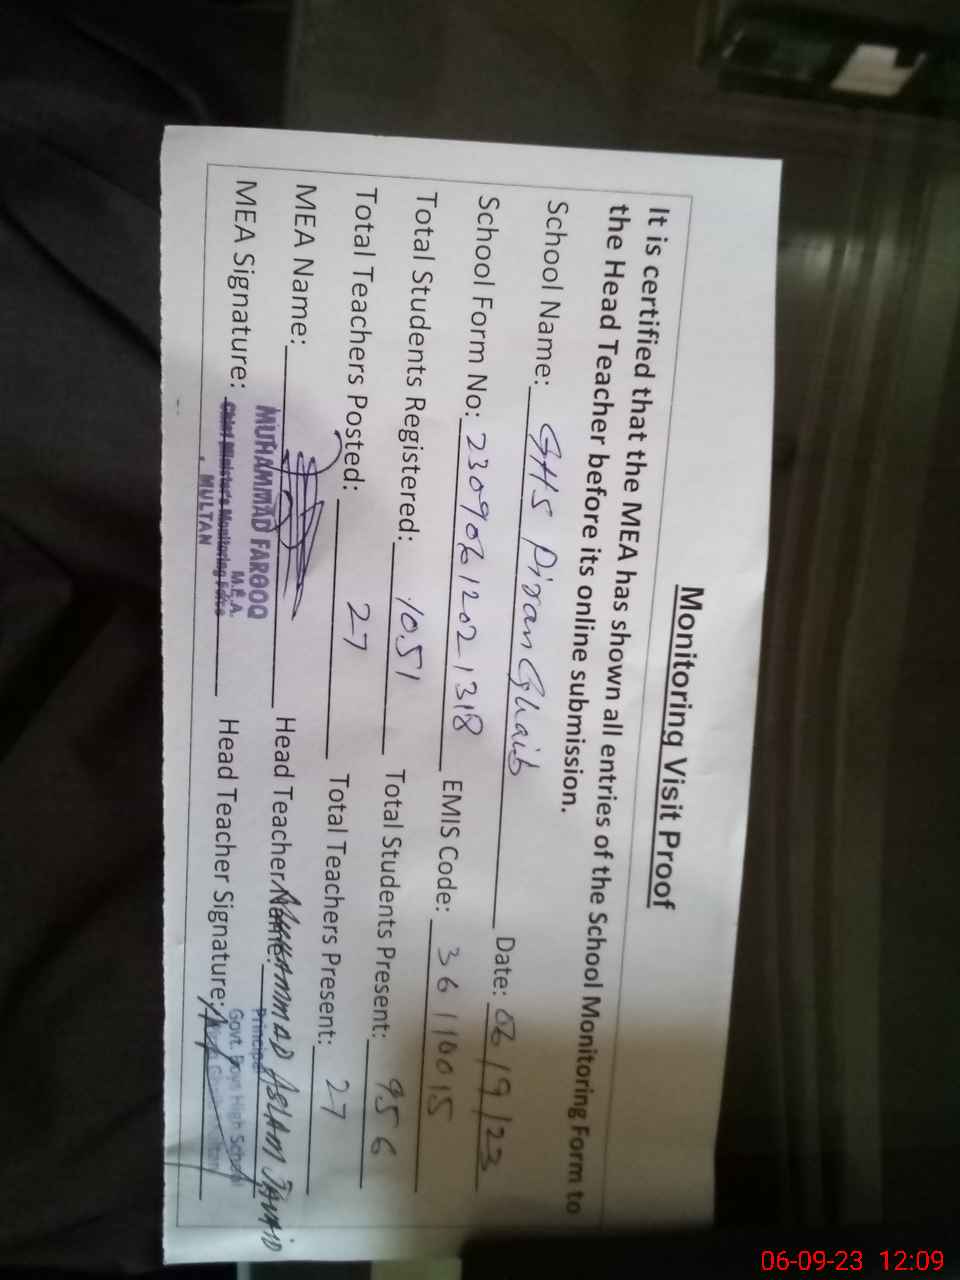 Monitoring Visit Proof
It is certified that the MEA has shown all entries of the School Monitoring Form to
the Head Teacher before its online submission.
School Name: GHS Piran Ghaib Date: 06/9/23
School Form No: 23090612021318 EMIS Code: 36110015
Total Students Registered: 1051 Total Students Present: 956
Total Teachers Posted: 27 Total Teachers Present: 27
MEA Name: Head Teacher Name: MUHAMMAD ASLAM JAVAID
MUHAMMAD FAROOQ
M.E.A.
Principal
MEA Signature: Chief Minister's Monitoring Force Head Teacher Signature:
MULTAN
Govt. Boys High School
06-09-23 12:09